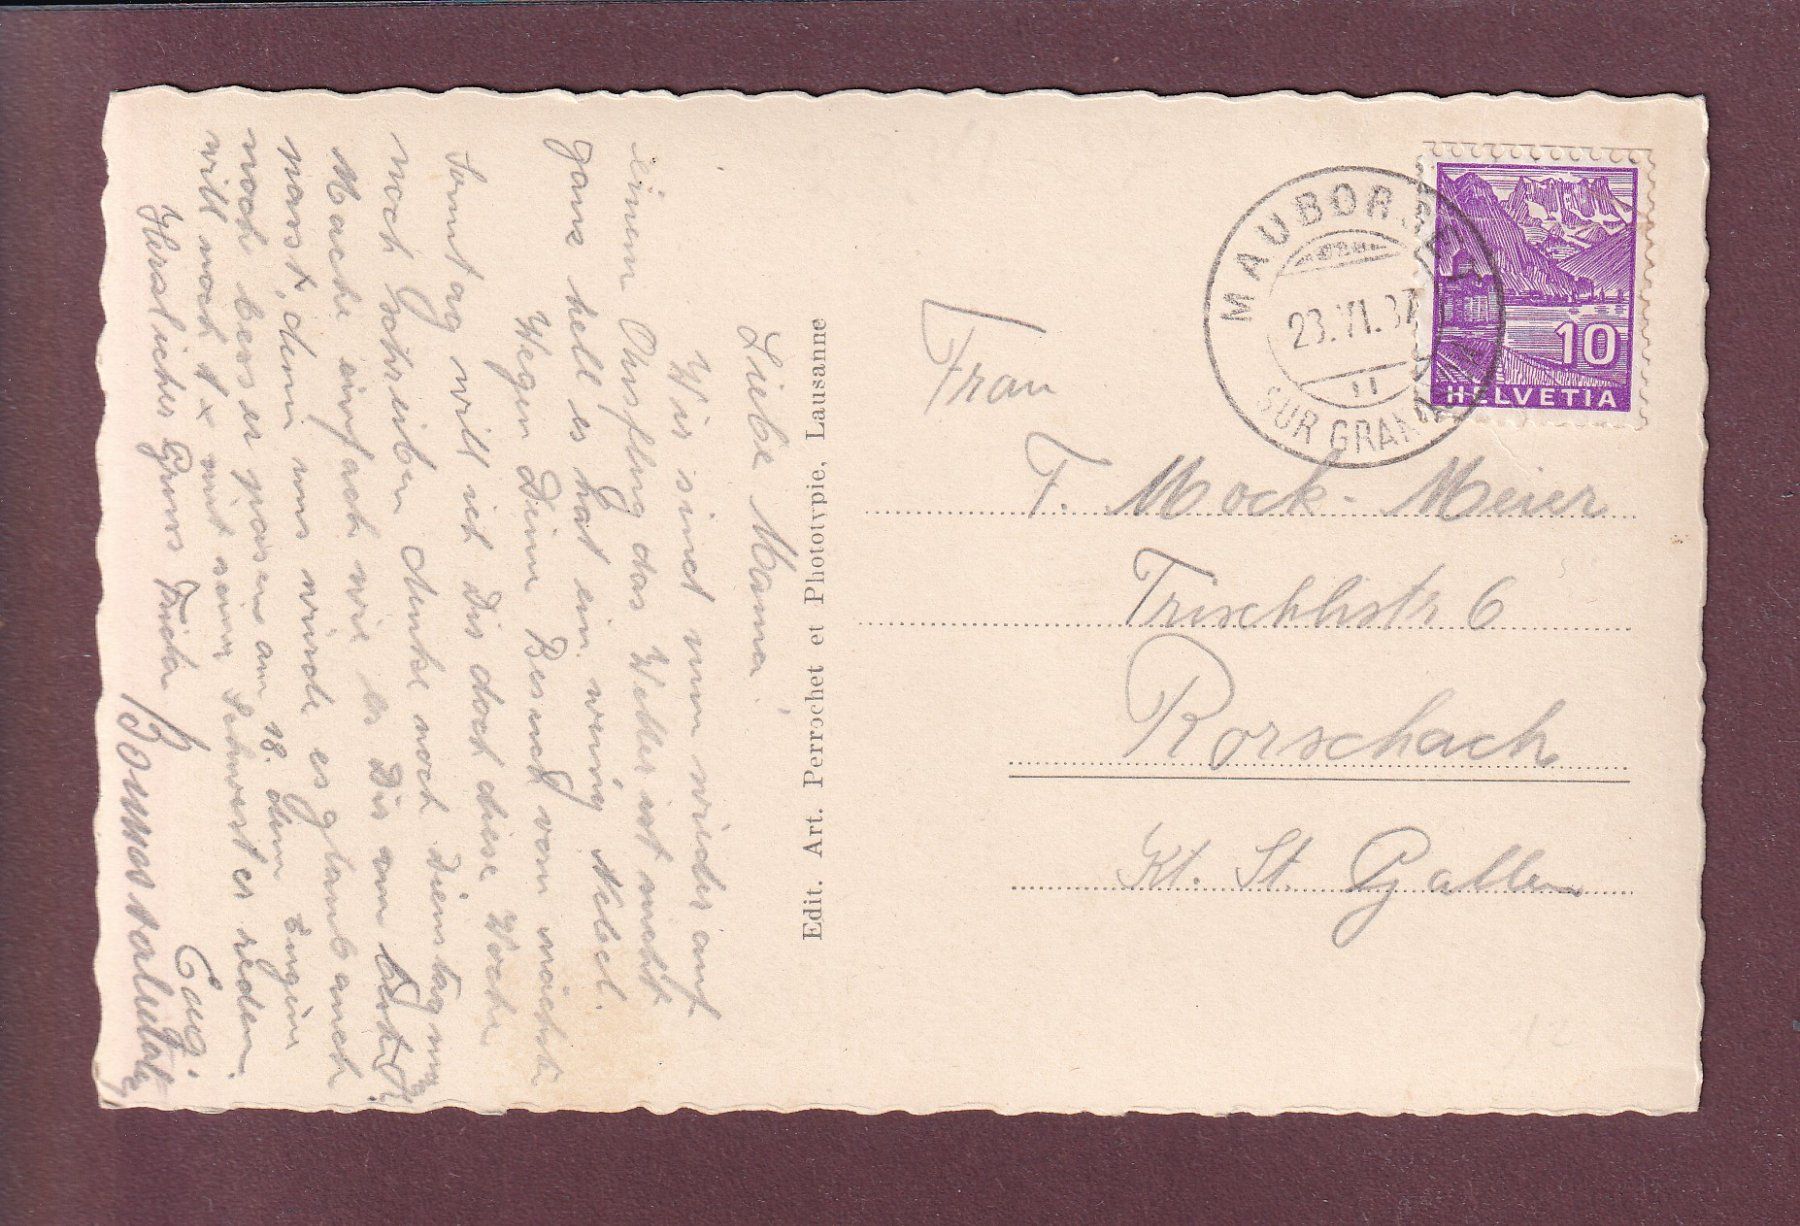 Liebe Mama
Wir sind nun wieder auf
einem Ausflug das Wetter ist nicht
ganz hell es hat ein wenig Nebel.
Wegen Deinem Besuch vom nächste
Sonntag will ich Dir doch diese Woche
noch schreiben denke noch Dienstag
Mache einfach wie es Dir am besten
passt, denn uns würde es glaub auch
noch besser passen am 18. denn Eugen
will noch 1 x mit seiner Schwester reden.
Herzlicher Gruss Frieda
Eugi
Edit. Art. Perrochet et Phototypie, Lausanne
MAUBORGET
23.VI.37
SUR GRANDSON
HELVETIA
10
Frau
F. Mock-Meier
Trischlistr. 6
Rorschach
Kt. St. Gallen